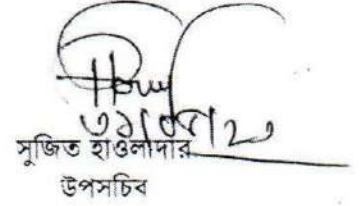 ৩১/০৮/২৩
সুজিত হাওলাদার
উপসচিব